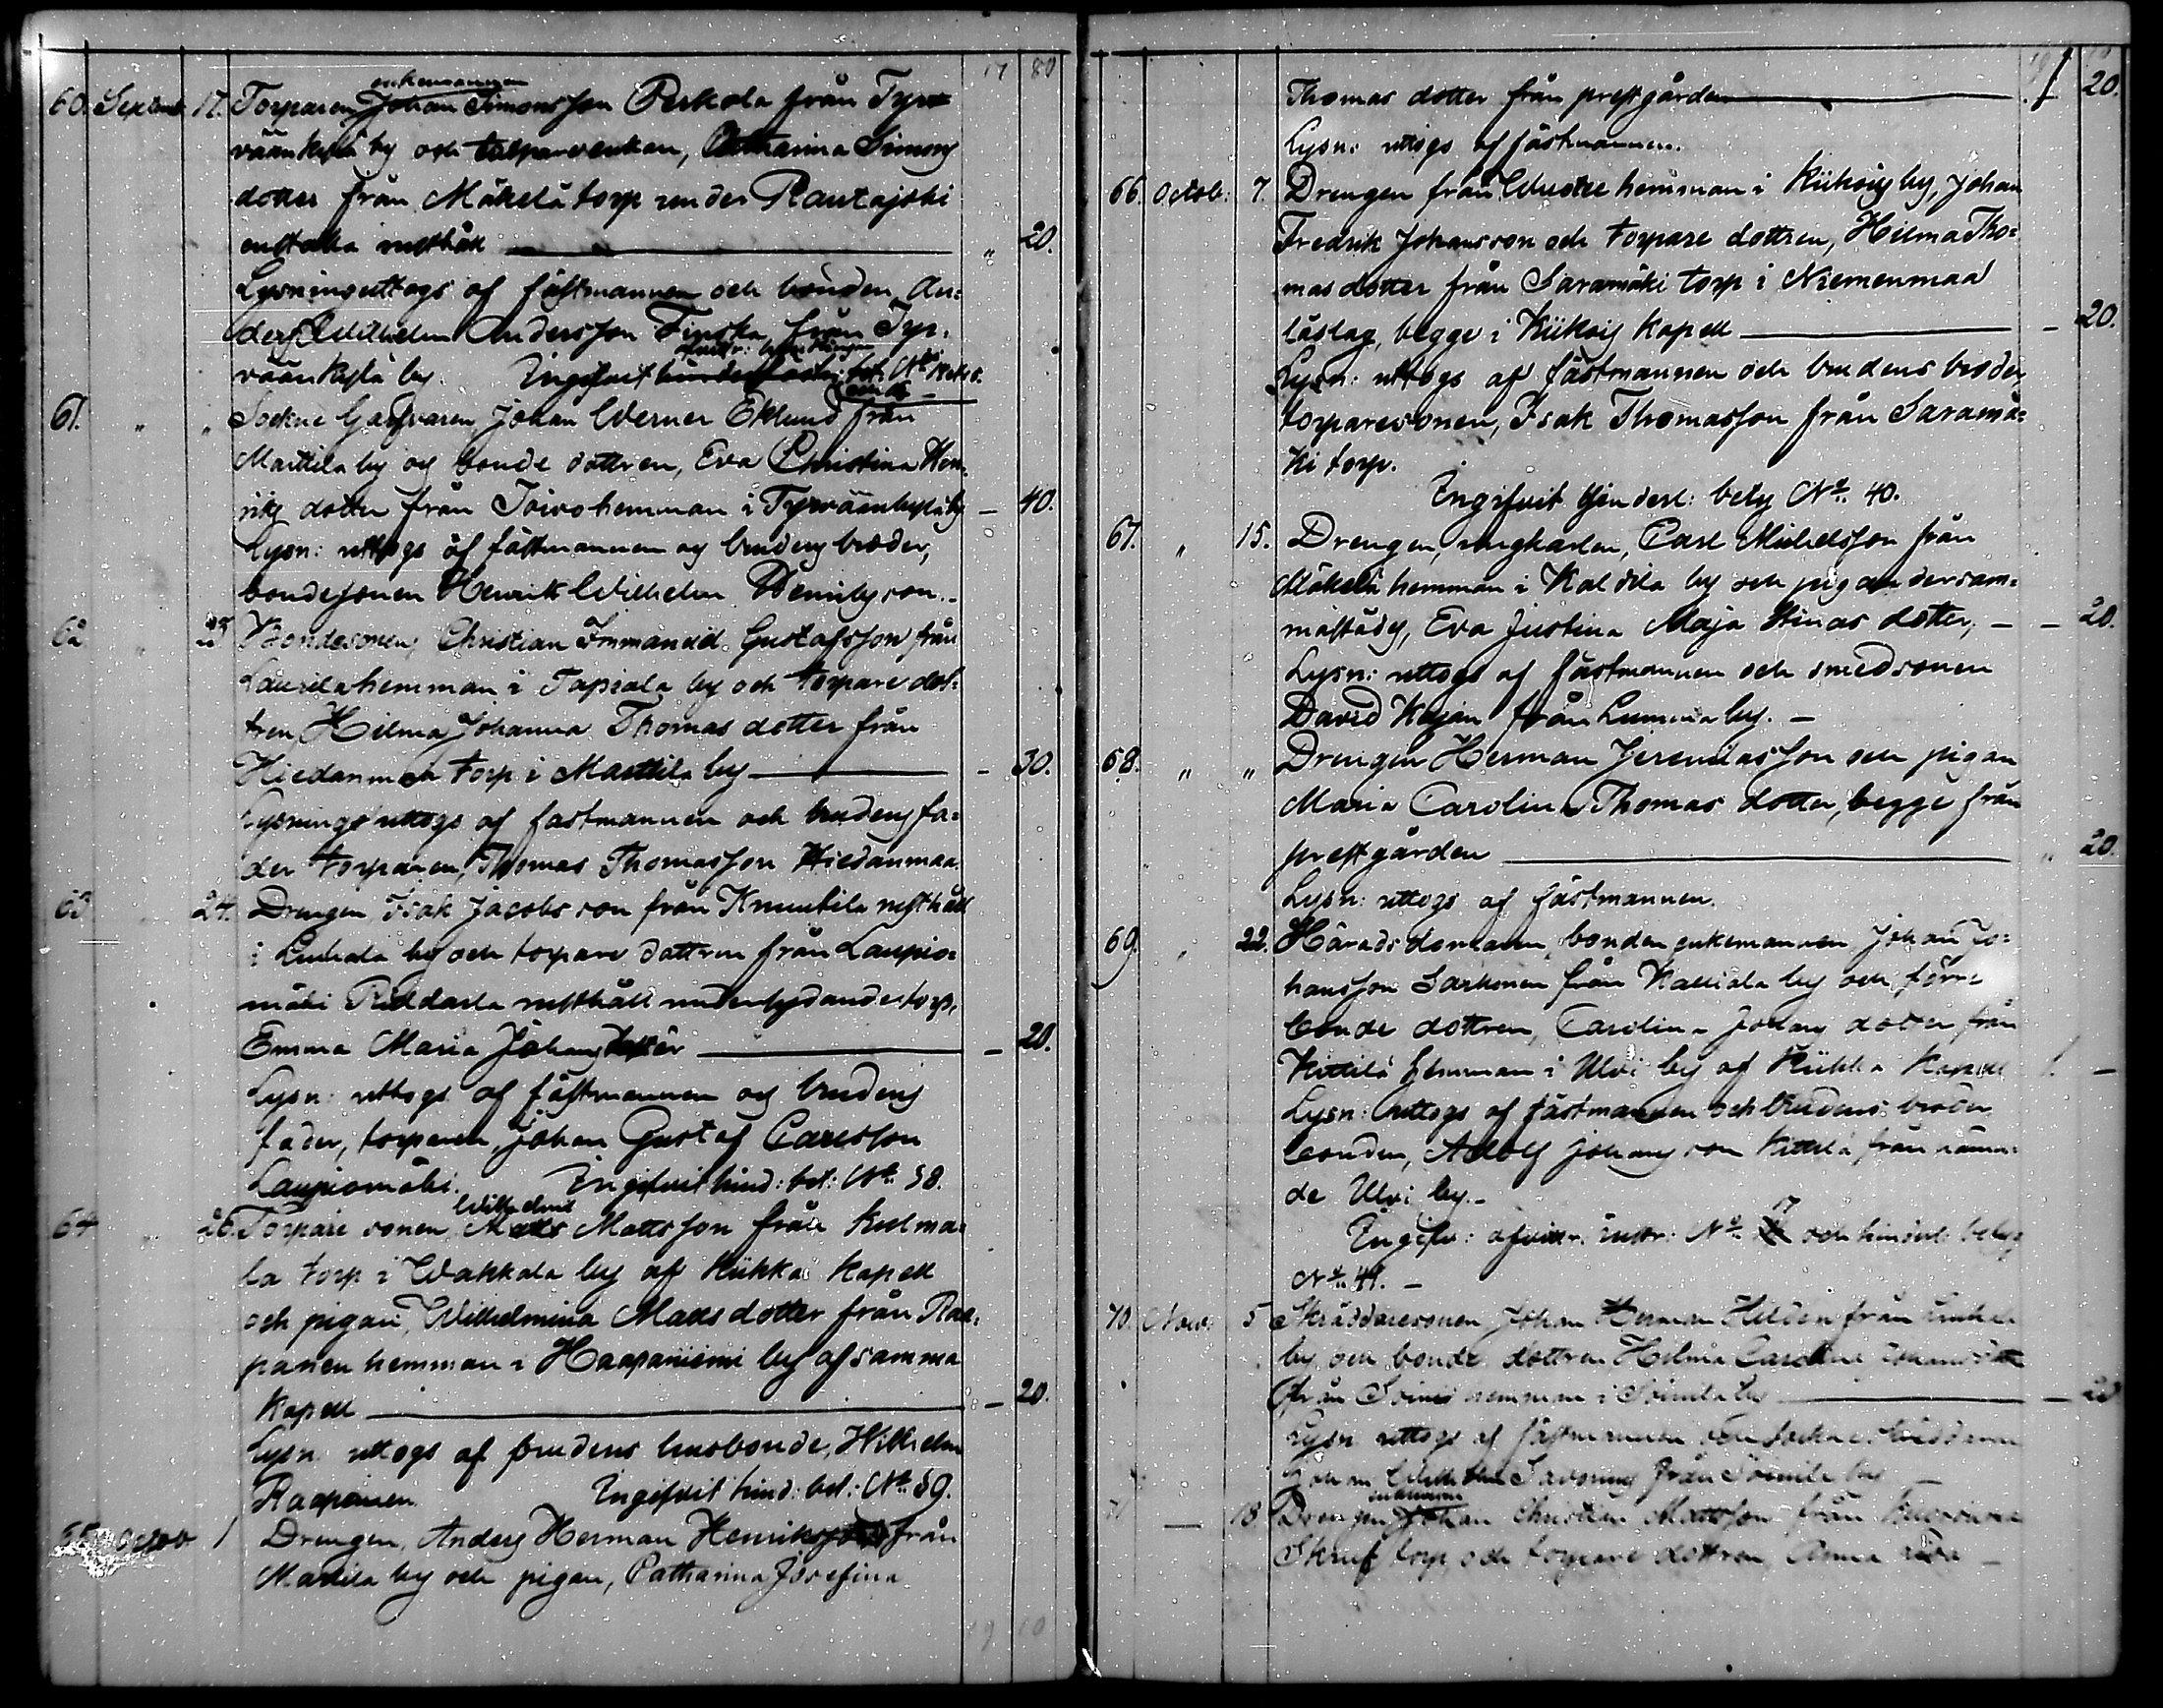 17 80
enkemannen
60. Septemb 17. Torparen Johan Simonsson Perkola från Tyr-
väänkylä by och torpareenkan, Catharina Simons
dotter från Mäkelä torp under Rautajoki
enstaka rusthåll — „ 20.
Lysning uttogs af fästmannen och bonden An-
ders Wilhelm Andersson Finska från Tyr-
väänkylä by. Ingifvit
61. „ „ Sockne Garfvaren Johan Werner Eklund från
Marttila by och bonde dottren, Eva Christina Hen-
riks dotter från Toivo hemman i Tyrväänkylä by — 40.
Lysn: uttogs af fästmannen og brudens broder,
bondesonen Henrik Wilhelm Henriksson.-
62. „ Bondesonen, Christian Immanuel Gustafsson från
Laurila hemman i Tapiala by och torpare dot-
tren, Hilma Johanna Thomas dotter från
Hiedanmaa torp i Marttila by — - 30.
Lysnings uttogs af fästmannen och brudens fa-
der torparen, Thomas Thomasson Hiedanmaa.
63. 24. Drengen Isak Jacobsson från Knuutila rusthåll
i Liuhala by och torpare dottren från Laupio-
mäki Riddarla rusthåll underlydande torp,
Emma Maria Johans dotter — 20.
Lysn: uttogs af fästmannen og brudens
fader, torparen, Johan Gustaf Carlsson
Laupiomäki. Ingifvit hind: bet: No. 38.
Wilhelm
64 „ 26. Torpare sonen Mats Mattsson från Kulma-
la torp i Wakkala by af Kiikka Kapell
och pigan, Wilhelmina Matts dotter från Raa-
panen hemman i Haapaniemi by af samma
Kapell — 20.
Lysn uttogs af brudens husbonde, Wilhelm
Raapanen. Ingifvit hind: bet: No. 39.
65. Octob 1 Drengen, Anders Herman Henriksson från
Marttila by och pigan, Catharina Josefina
Thomas dotter från prestgården — 20.
Lysn: uttogs af fästmannen.
66. Octob: 7. Drengen från hemman i Kiikois by, Johan
Fredrik Johansson och torpare dottren, Hilma Tho-
mas dotter från Saramäki torp i Niemenmaa
låslag, begge i Kiikois Kapell — 20.
Lysn: uttogs af fästmannen och brudens broder,
torparesonen, Isak Thomasson från Saramä-
ki torp.
Ingifvit hindersl: bety No. 40.
67. „ 15. Drengen, ungkarlen, Carl Michelsson från
Mäkelä hemman i Kaldila by och pigan dersam-
mastädes, Eva Justina Maja Stinas dotter, — 20.
Lysn: uttogs af fästmannen och smedsonen
David Kajan från Lumma by. —
68. „ „ Drengen Herman Jeremiasson och pigan
Maria Carolina Thomas dotter, begge från
prestgården — „ 20.
Lysn: uttogs af fästmannen.
69. „ 22. Häradsdomaren, bonden enkemannen Johan Jo-
hansson Sarkonen från Kalliala by och förre
bonde dottren, Carolina Johans dotter från
Kittilä hemman i Ulvi by af Kiikka Kapell 1. —
Lysn: uttogs af fästmannen och brudens broder
bonden, Adolf Johansson Kittilä från nämn-
de Ulvi by.-
17
Ingifv: afvittr. instr: No. och hindersl: betyg
No. 41. —
70. Nov: 5 Skräddaresonen Johan Herman Helden från
by och bonde dottren Hilma Carolina
från hemman i by — 20
Lysn uttogs af fästmannen
från by —
71 — 18 Drengen Johan Christian Mattsson från
torp och torpare dottren, Anna